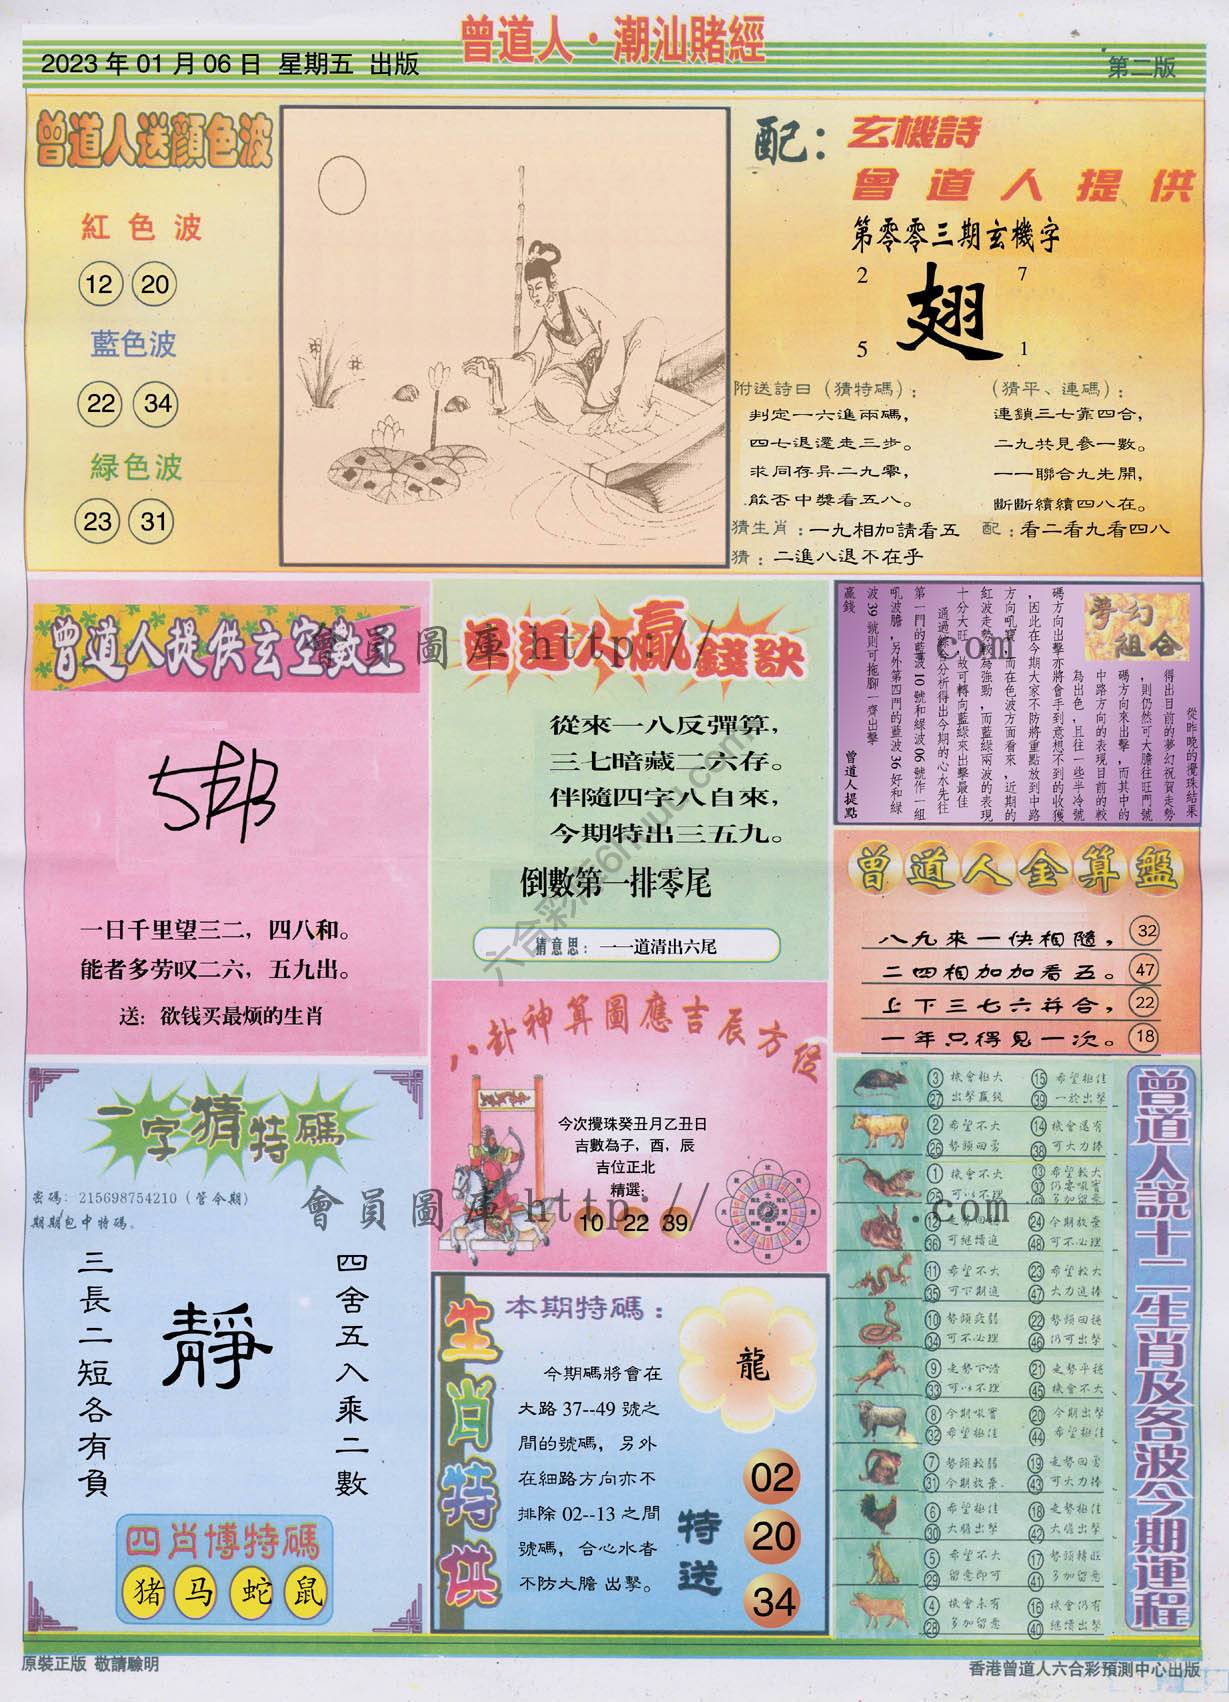 曾道人·潮汕賭經
2023 年 01 月 06 日 星期五 出版
第二版
曾道人送顏色波
紅 色 波
12 20
藍色波
22 34
綠色波
23 31
配：玄機詩
曾 道 人 提 供
第零零三期玄機字
2 7
翅
5 1
附送詩曰（猜特碼）：
判定一六進兩碼，
四七退還走三步。
求同存异二九零，
能否中獎看五八。
（猜平、連碼）：
連鎖三七靠四合，
二九共見參一數。
一一聯合九先開，
斷斷續續四八在。
猜生肖：一九相加請看五
配：看二看九看四八
猜：二進八退不在乎
曾道人提供玄空數王
一日千里望三二，四八和。
能者多劳叹二六，五九出。
送：欲钱买最烦的生肖
曾道人贏錢訣
從來一八反彈算，
三七暗藏二六存。
伴隨四字八自來，
今期特出三五九。
倒數第一排零尾
猜意思：一一道清出六尾
夢幻
組合
從昨晚的攪珠結果
得出目前的夢幻祝賀走勢
，則仍然可大膽往旺門號
碼方向來出擊，而其中的
中路方向的表現目前的較
為出色，且往一些半冷號
碼方向出擊亦將會手到意想不到的收獲
，因此在今期大家不防將重點放到中路
方向吼寶，而在色波方面看來，近期的
紅波走勢較為強勁，而藍綠兩波的表現
十分大旺，故可轉向藍綠來出擊最佳
通過綜合分析得出今期的心水先往
第一門的藍波 10 號和綠波 06 號作一組
吼波膽，另外第四門的藍波 36 好和綠
波 39 號則可拖腳一齊出擊
贏錢
曾道人提點
曾道人金算盤
八九來一快相隨， 32
二四相加加看五。 47
上下三七六并合， 22
一年只得見一次。 18
一字猜特碼
密碼：215698754210（管今期）
期期包中特碼。
四舍五入乘二數
靜
三長二短各有負
四肖博特碼
猪 马 蛇 鼠
八卦神算圖應吉辰方位
今次攪珠癸丑月乙丑日
吉數為子，酉，辰
吉位正北
精選：
10 22 39
生肖特供
本期特碼：
今期碼將會在
大路 37--49 號之
間的號碼，另外
在細路方向亦不
排除 02--13 之間
號碼，合心水者
不防大膽 出擊。
龍
特送
02
20
34
曾道人說十二生肖及各波今期運程
3 機會極大 15 希望極佳
27 出擊贏錢 39 一於出擊
2 希望不大 14 機會還有
26 勢頭回勇 38 可大力捧
1 機會不大 13 希望較大
25 可以不理 37 仍要吼實
49 多加留意
12 走勢回穩 24 今期放棄
36 可繼續追 48 可不必理
11 希望不大 23 希望較大
35 可下期追 47 大力追捧
10 勢頭疲弱 22 勢頭回穩
34 可不必理 46 仍可出擊
9 走勢下滑 21 走勢平穩
33 可以不理 45 機會不大
8 今期吼實 20 今期出擊
32 希望極佳 44 希望極佳
7 勢頭較弱 19 走勢回勇
31 今期放棄 43 可大力捧
6 希望極佳 18 走勢極佳
30 大膽出擊 42 大膽出擊
5 希望不大 17 勢頭轉旺
29 留意即可 41 多加留意
4 機會未有 16 機會仍有
28 多加留意 40 繼續出擊
會員圖庫 http://
.com
會員圖庫 http://
.com
原裝正版 敬請驗明
香港曾道人六合彩預測中心出版